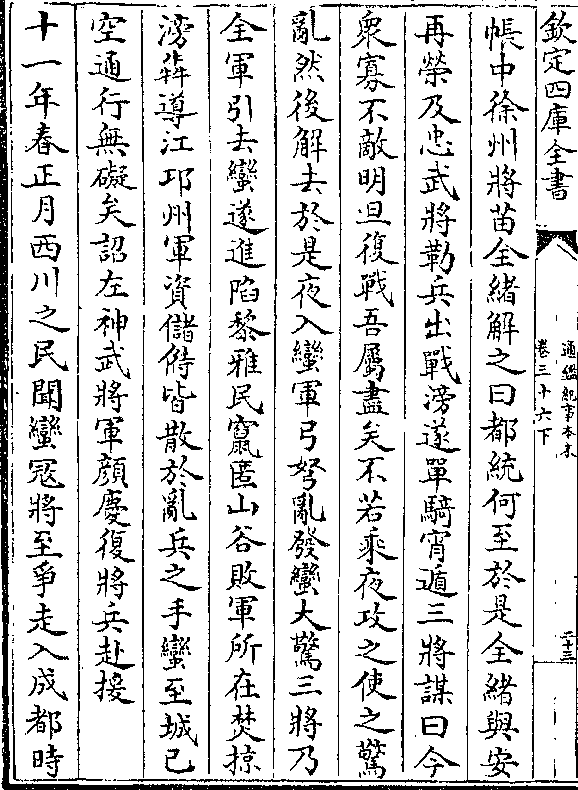 欽定四庫全書
通鑑紀事本末
卷三十六下
二十三
帳中徐州將苗全緒解之曰都統何至於是全緒與安
再榮及忠武將勒兵出戰滂遂單騎宵遁三將謀曰今
衆寡不敵明旦復戰吾屬盡矣不若乘夜攻之使之驚
亂然後解去於是夜入蠻軍弓弩亂發蠻大驚三將乃
全軍引去蠻遂進陷黎雅民竄匿山谷敗軍所在焚掠
滂犇導江邛州軍資儲偫皆散於亂兵之手蠻至城已
空通行無礙矣詔左神武將軍顔慶復將兵赴援
十一年春正月西川之民聞蠻寇將至爭走入成都時